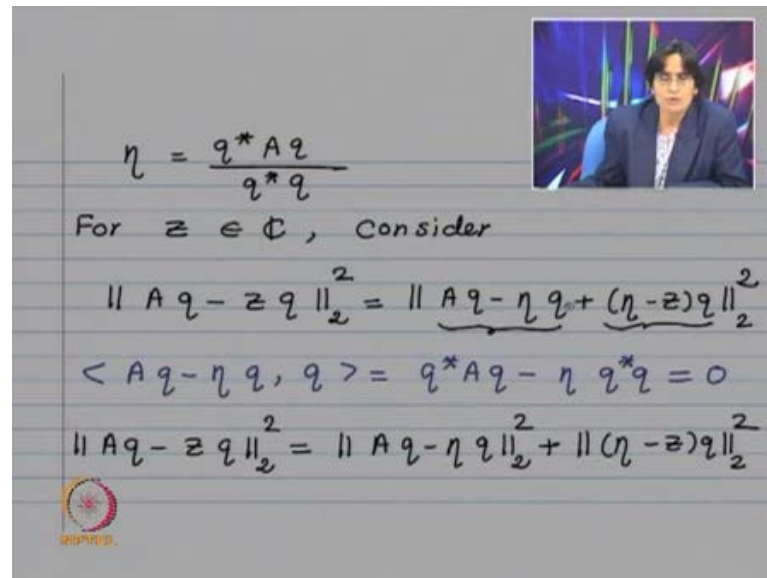 η = q* A q / q* q
For z ∈ ℂ, consider
|| A q - z q ||₂² = || A q - η q + (η - z) q ||₂²
< A q - η q, q > = q* A q - η q* q = 0
|| A q - z q ||₂² = || A q - η q ||₂² + || (η - z) q ||₂²
NPTEL